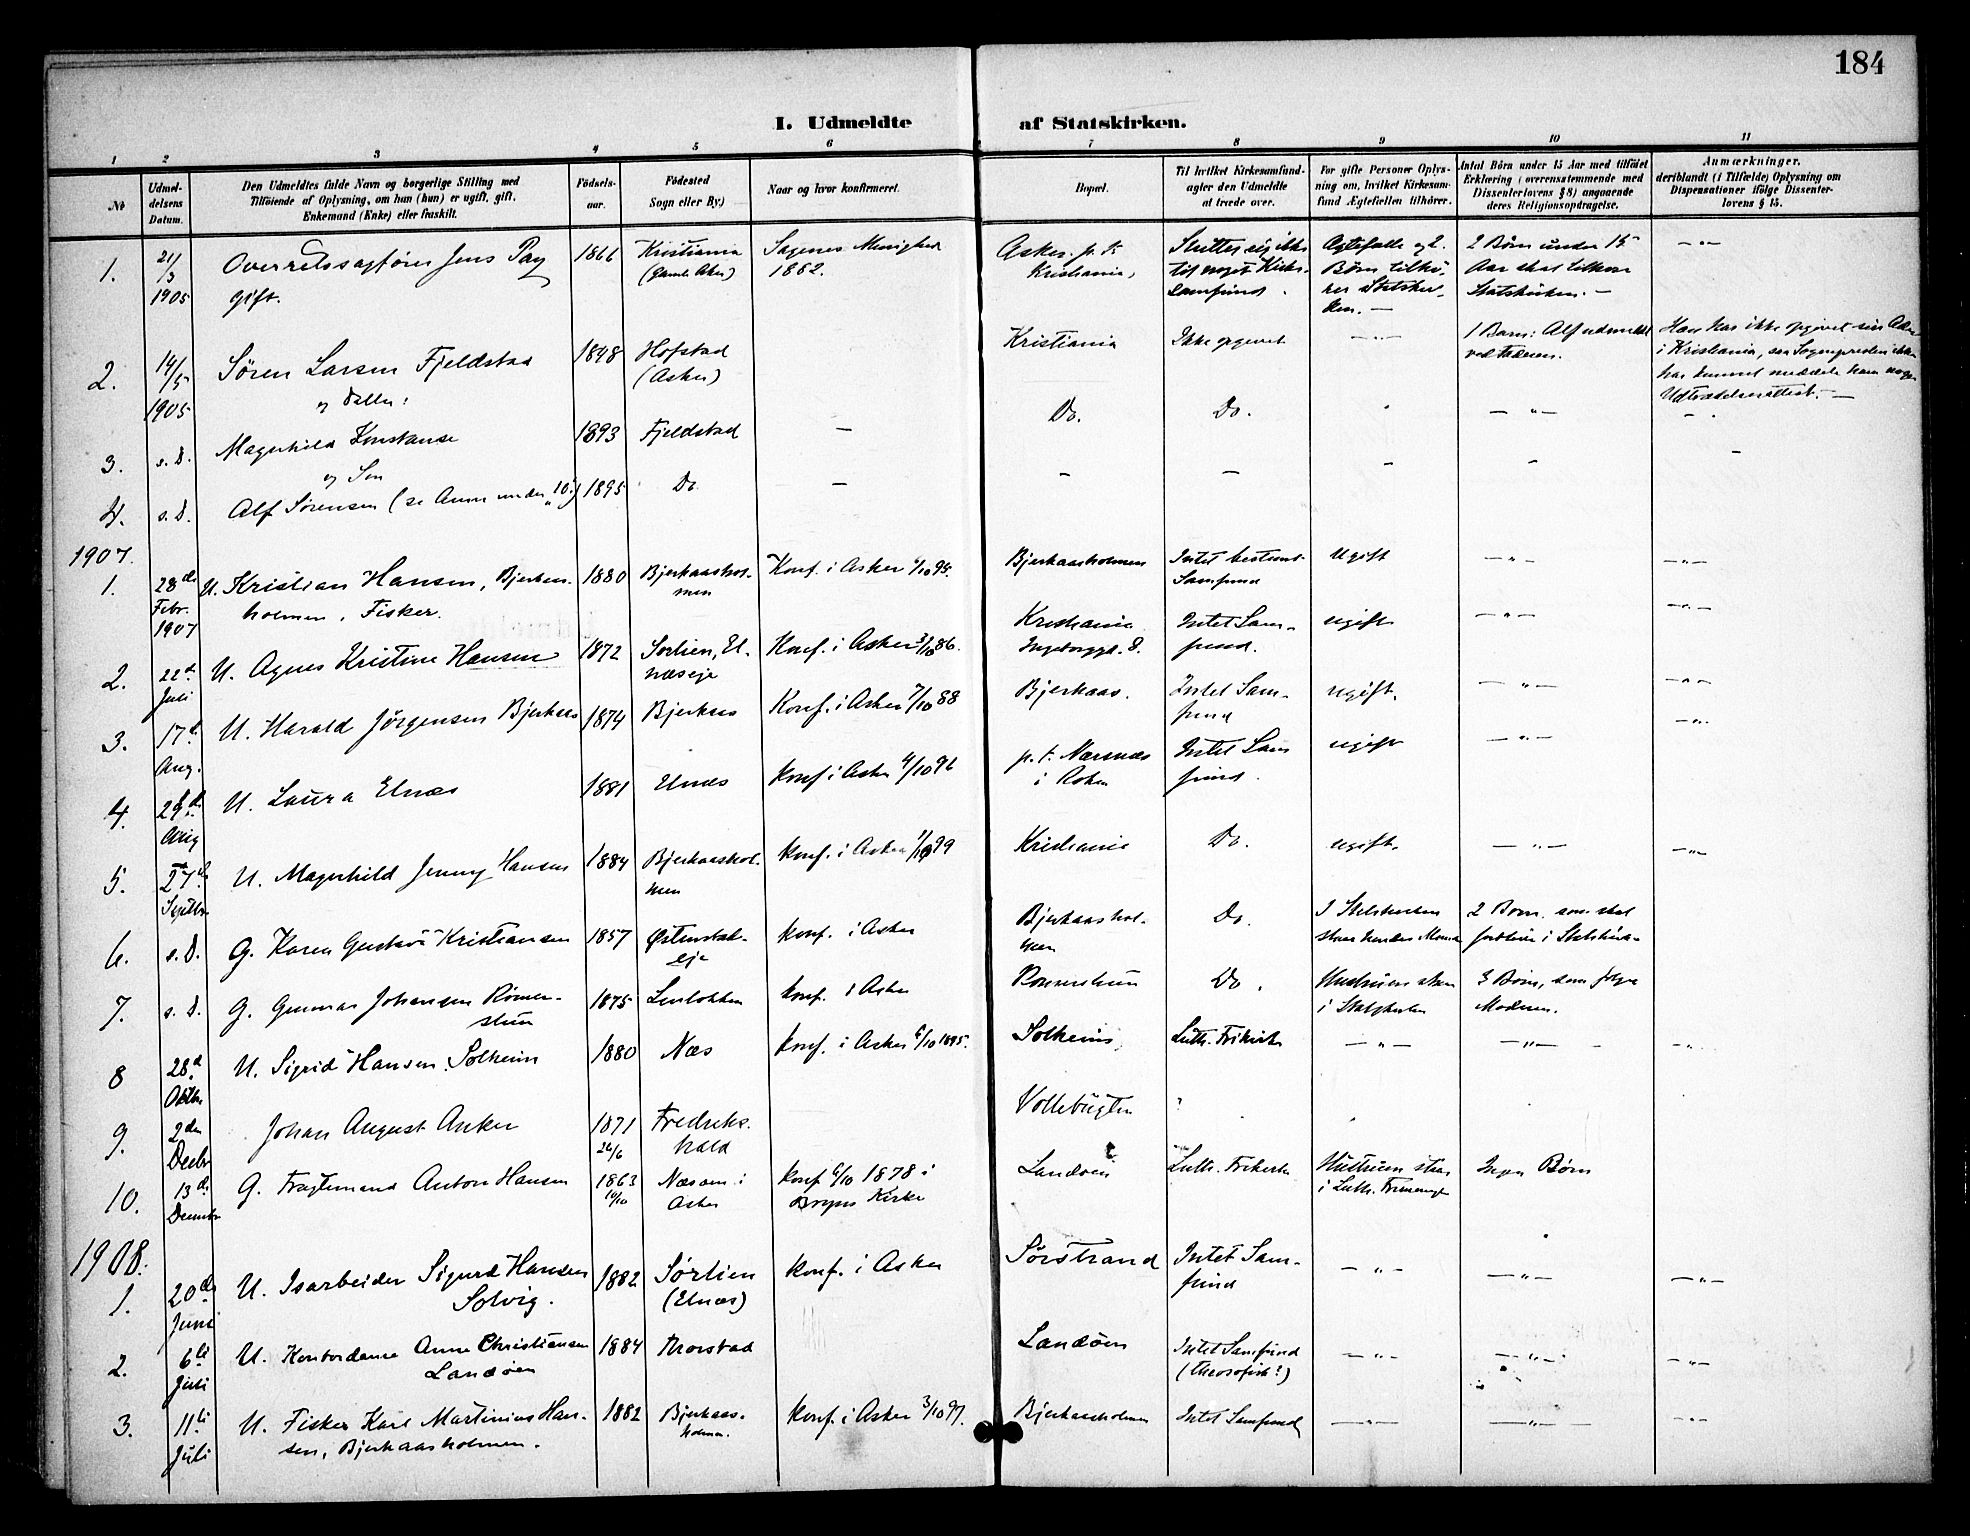 184
I. Udmeldte af Statskirken.
1 2 3 4 5 6 7 8 9 10 11
No
Udmeldelsens Datum.
Den Udmeldtes fulde Navn og borgerlige Stilling med
Tilføiende af Oplysning, om han (hun) er ugift, gift,
Enkemand (Enke) eller fraskilt.
Fødselsaar.
Fødested
Sogn eller By)
Naar og hvor konfirmeret.
Bopæl.
Til hvilket Kirkesamfund
agter den Udmeldte
at træde over.
For gifte Personer Oplysning om, hvilket Kirkesamfund Ægtefællen tilhører.
Antal Børn under 15 Aar med tilføiet
Erklæring (overensstemmende med
Dissenterlovens § 8) angaaende
deres Religionsopdragelse.
Anmærkninger,
deriblandt (i Tilfælde) Oplysning om
Dispensationer ifølge Dissenterlovens § 15.
1. 21/3 1905 Overretssagfører Jens Pay gift. 1866 Kristiania (Gamle Aker) Sagenes Menighed 1882. Asker. p. t. Kristiania, Slutter sig ikke til noget Kirkesamfund. Ægtefælle og 2 Børn tilhører Statskirken. — 2 Børn under 15 Aar skal tilhøre Statskirken. — — " —
2. 14/5 1905 Søren Larsen Fjeldstad 1848 Hofstad (Asker) Kristiania Ikke opgivet — " — 1 Barn: Alf udmeldt ved Faderen. Han har ikke opgivet sin Adr. i Kristiania, saa Sognepresten ikke har kunnet meddele ham nogen Udtrædelsesattest. —
og Datter:
3. s. D. Magnhild Konstanse 1893 Fjeldstad — Do. Do. " — " — — " .
og Søn
4. s. D. Alf Sørensen (se Anm under "10.) 1895 Do — — — " " —
1907.
1. 28de Febr. 1907 U. Kristian Hansen, Bjerkaasholmen, Fisker. 1880 Bjerkaasholmen Konf. i Asker 6/10 95. Bjerkaasholmen Intet bestemt Samfund Ugift — " — — " —
2. 22d Juli U. Agnes Kristine Hansen 1872 Sørlien, Elnæseje Konf. i Asker 3/10 86. Kristiania Ingeborggt. 8. Intet Samfund. ugift — " — — " —
3. 17d Aug. U. Harald Jørgensen Bjerkaas 1874 Bjerkaas Konf. i Asker 7/10 88 Bjerkaas. Intet Samfund ugift. — " — — " —
4. 29d Aug U. Laura Elnæs 1881 Elnæs Konf i Asker 4/10 96 p. t. Nærsnæs i Røken Intet Samfund. ugift — " — — " .
5. 27d Septbr U. Magnhild Jenny Hansen 1884 Bjerkaasholmen Konf. i Asker 1/10 99 Kristiania Do. ugift. — " — — " —
6. s. D. G. Karen Gustava Kristiansen 1857 Østenstadeje Konf. i Asker Bjerkaasholmen Do. I Statskirken staar hendes Mand 2 Børn. som skal forblive i Statskirken
7. s. D. G. Gunnar Johansen Rønnerstun 1875 Konf. i Asker Do. Hustruen staar i Statskirken 3 Børn, som følge Moderen.
8 28d Oktbr U. Sigrid Hansen Solheim 1880 Næs Konf. i Asker 6/10 1895. Solheim, Luth. Frikirke — " — — " — — " .
9. 2den Decbr Johan August Anker 1871 26/6 Fredrikshald Vollebugten ?
10. 13d Decmbr G. Fragtemand Anton Hansen 1863 10/10 Næsøen i Asker Konf 6/10 1878 i Kirke Landøen Luth. Frikirke Hustruen staar i Luth. Frimenigh Ingen Børn
1908.
1. 20de Juni U. Isarbeider Sigurd Hansen Solvig. 1882 Sørlien (Elnæs) Konf. i Asker Sørstrand Intet Samfund — " — — " — — " —
2. 6te Juli U. Kontordame Anne Christiansen Landøen 1884 Morstad Landøen Intet Samfund (theosofisk?) — " — — " — — " —
3. 11te Juli U. Fisker Karl Martinius Hansen, Bjerkaasholmen. 1882 Bjerkaasholmen. Konf. i Asker 3/10 97. Bjerkaasholmen Intet Samfund — " — — " — — " —